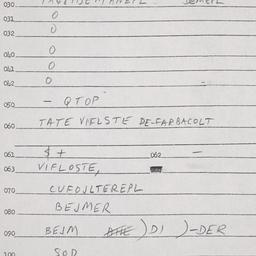 030
031 0
032 0
040 0
041 0
042 0 -
050 - QTOP
060 TATE VIFLSTE DE-FARBACOLT
061 $ + 062 -
063 VIFLOSTE,
070 CUFOJLTEREPL
080 BEJMER
090 BEJM )DI )-DER
100 SOD